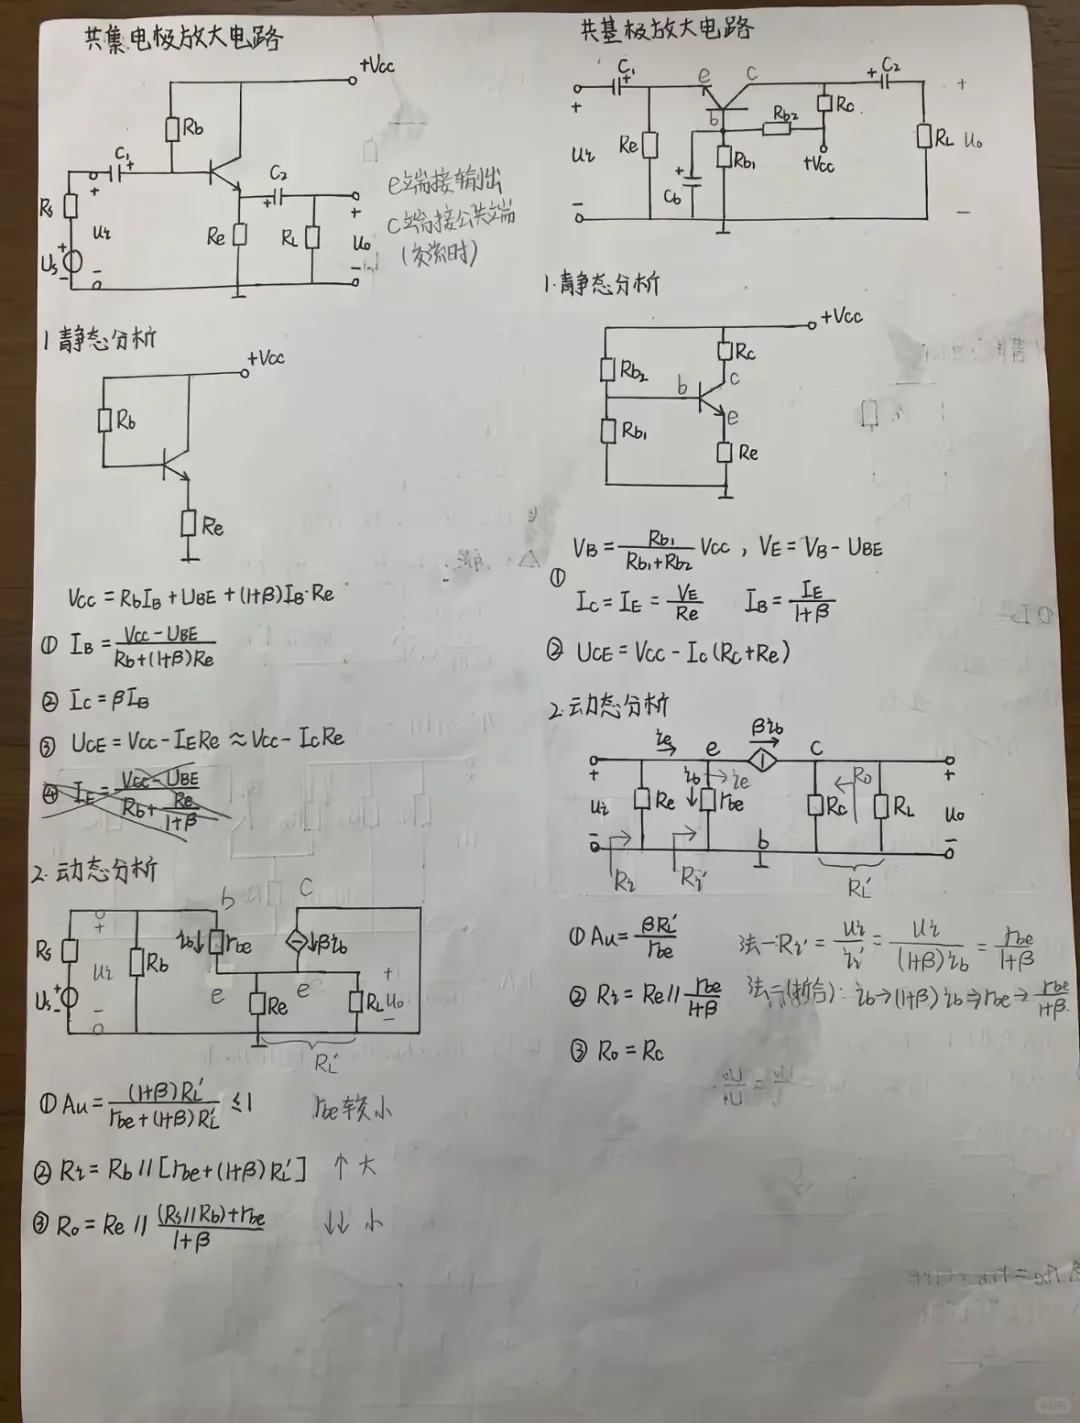 共集电极放大电路
+Vcc
Rb
C₁
+
C₂
+
Rs
+
Ui
−
Re
RL
+
Uo
−
Us
+
−
e端接输出
c端接公共端
(交流时)
1.静态分析
+Vcc
Rb
Re
Vcc = RbIB + UBE + (1+β)IB·Re
① IB = (Vcc − UBE) / (Rb + (1+β)Re)
② Ic = βIB
③ UCE = Vcc − IERe ≈ Vcc − IcRe
④ IE = (Vcc − UBE) / (Rb + Re/(1+β))
2.动态分析
b
c
Rs
+
Ui
−
Rb
ib↓
rbe
↓βib
Us
+
−
e
Re
e
RL
+
Uo
−
RL′
① Au = (1+β)RL′ / (rbe + (1+β)RL′) ≤ 1
rbe较小
② Ri = Rb // [rbe + (1+β)RL′] ↑ 大
③ Ro = Re // ((Rs//Rb) + rbe) / (1+β) ↓↓ 小
共基极放大电路
C₁
+
e
c
b
+
C₂
+
Ui
−
Re
Rb₂
Rc
+Vcc
Rb₁
+
Cb
RL
+
Uo
−
1.静态分析
+Vcc
Rc
Rb₂
b
c
e
Rb₁
Re
VB = Rb₁ / (Rb₁ + Rb₂) Vcc , VE = VB − UBE
①
Ic = IE = VE / Re IB = IE / (1+β)
② UCE = Vcc − Ic(Rc + Re)
2.动态分析
ie
e
βib
c
+
Ui
−
Re
ib↓
ie
rbe
b
Rc
Ro
RL
+
Uo
−
Ri
Ri′
RL′
① Au = βRL′ / rbe
法一:Ri′ = Ui / ii′ = Ui / ((1+β)ib) = rbe / (1+β)
② Ri = Re // rbe / (1+β)
法二(折合): ib → (1+β)ib ⇒ rbe → rbe / (1+β)
③ Ro = Rc